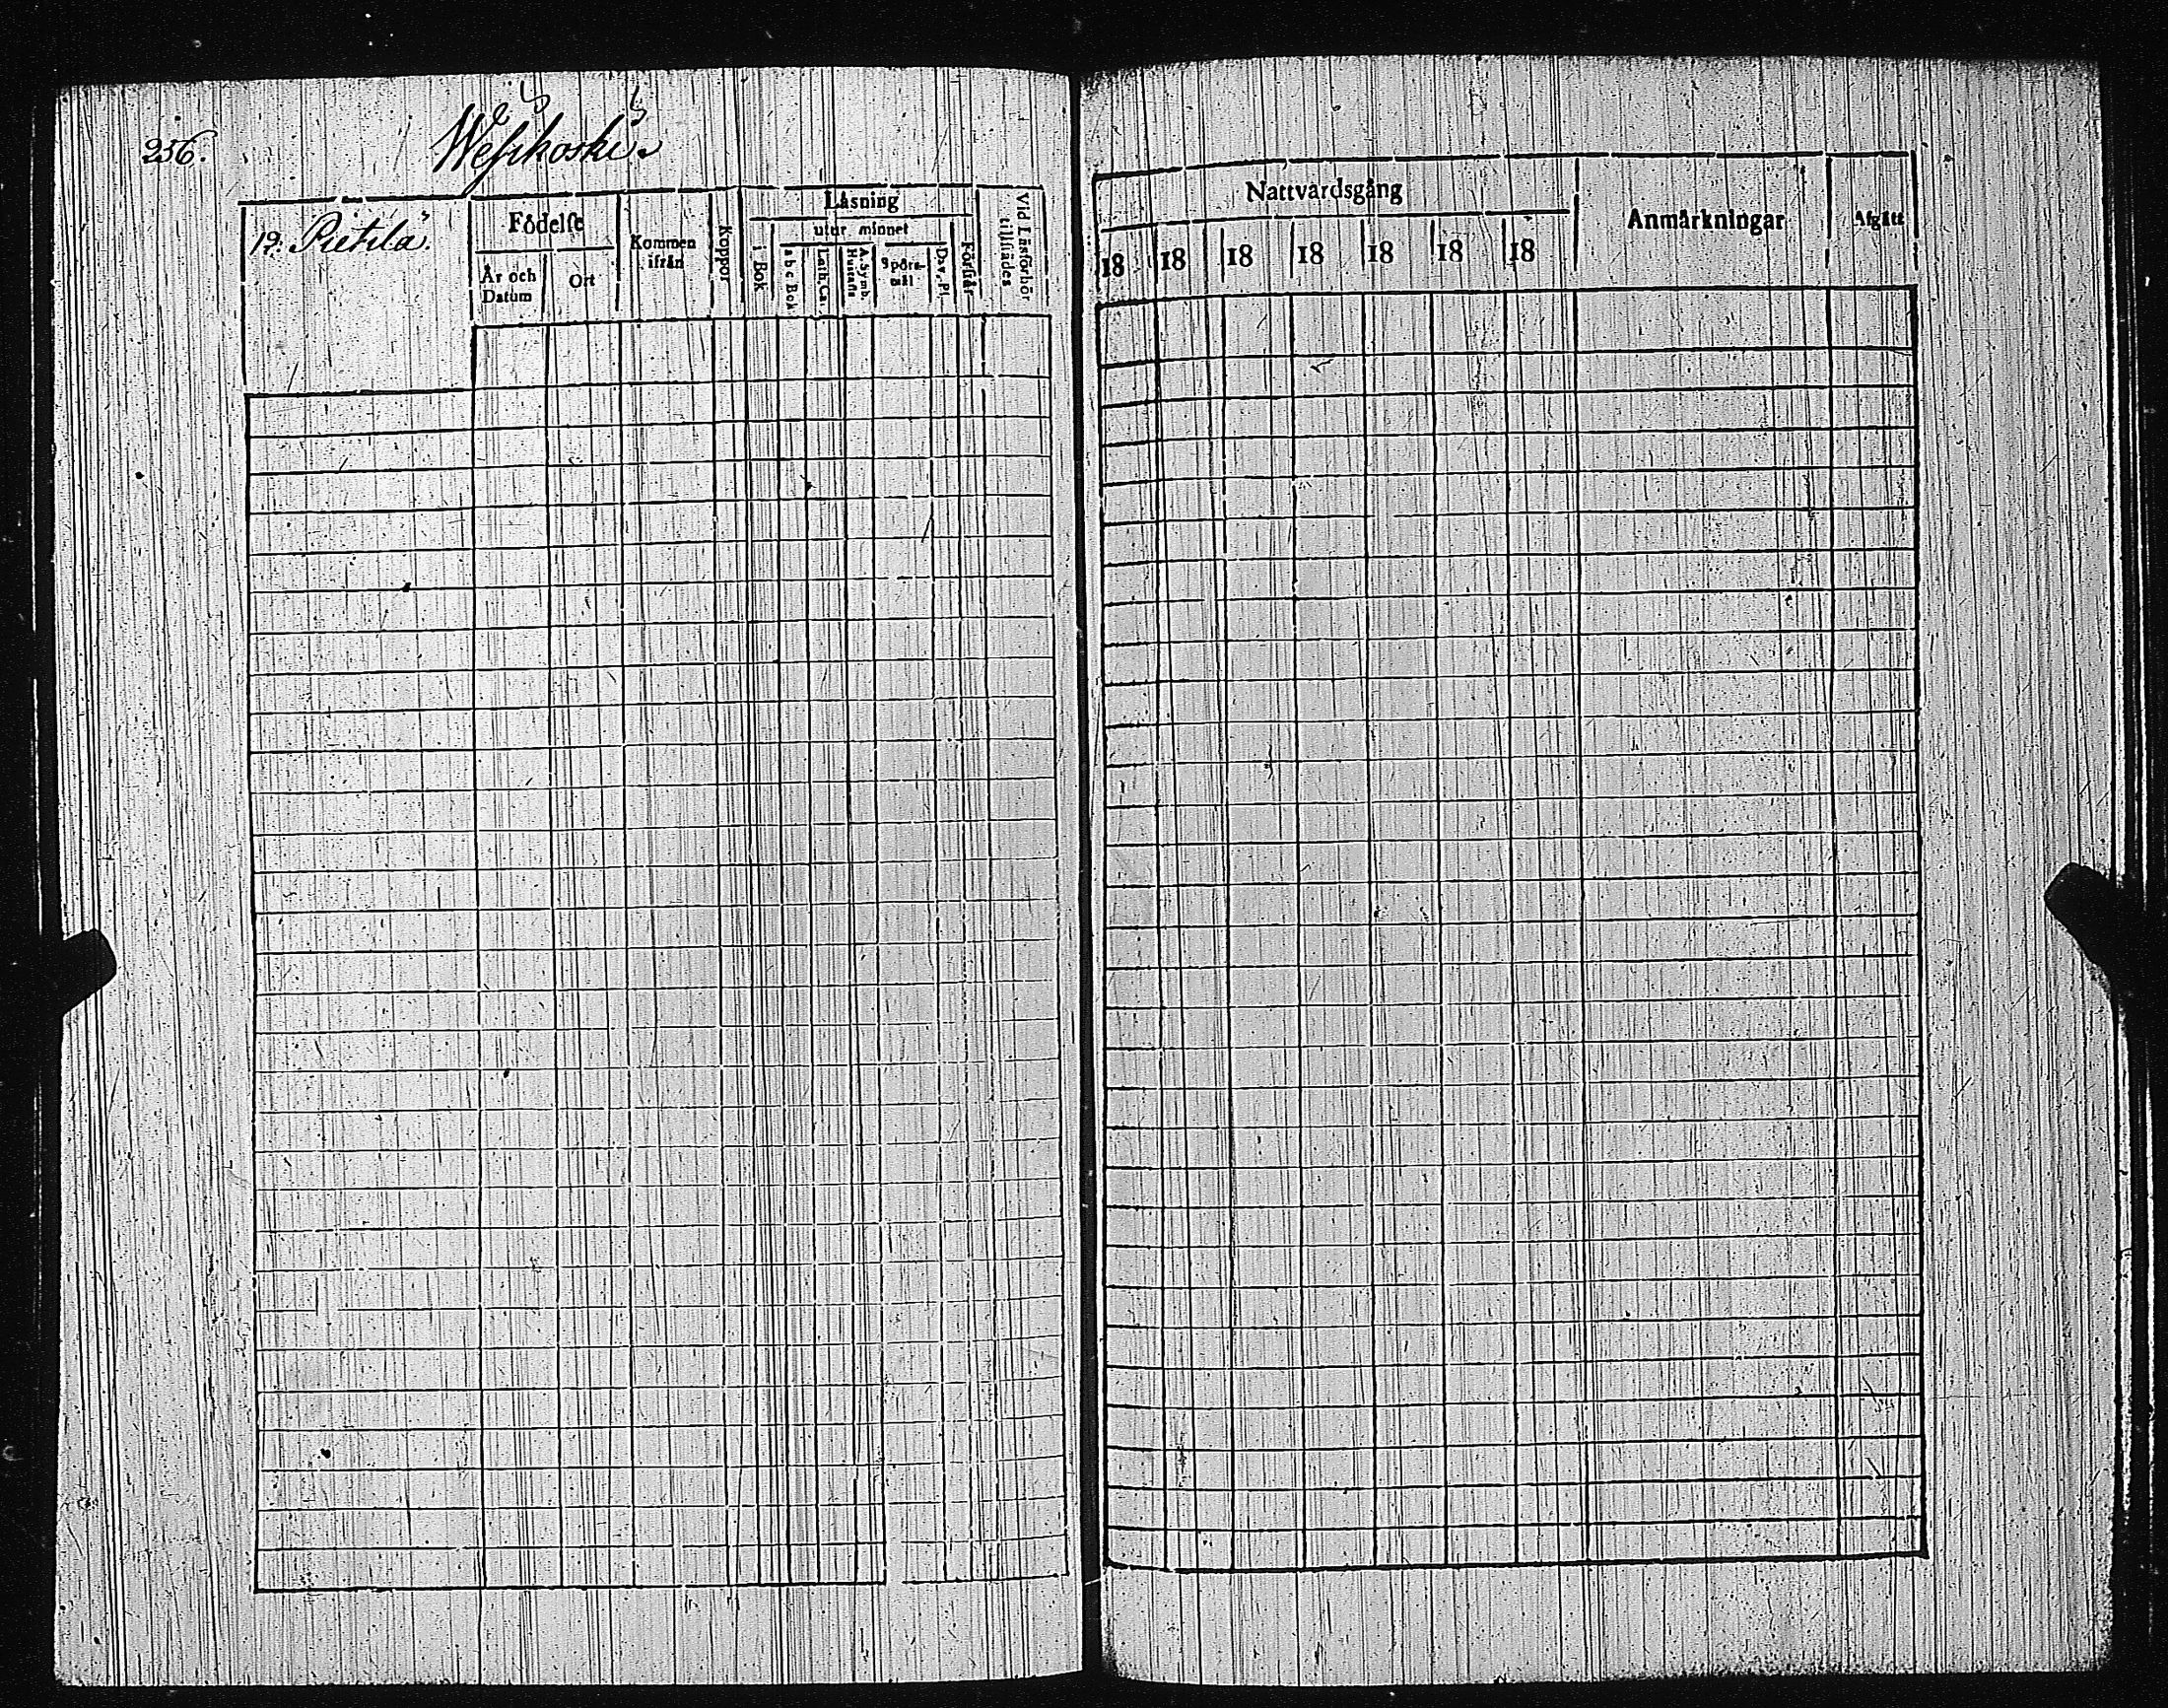 256.
Wesikoski.
19. Pietilä.
Födelse
År och Datum
Ort
Kommen ifrån
Koppor
Läsning
i Bok
utur minnet
a b c Bok
Luth. Ca.
A. Symb. Hustafl.
Spörsmål
Dav. Ps.
Förstår
Vid Läsförhör tillstädes
Nattvardsgång
18 18 18 18 18 18 18
Anmärkningar
Afgått